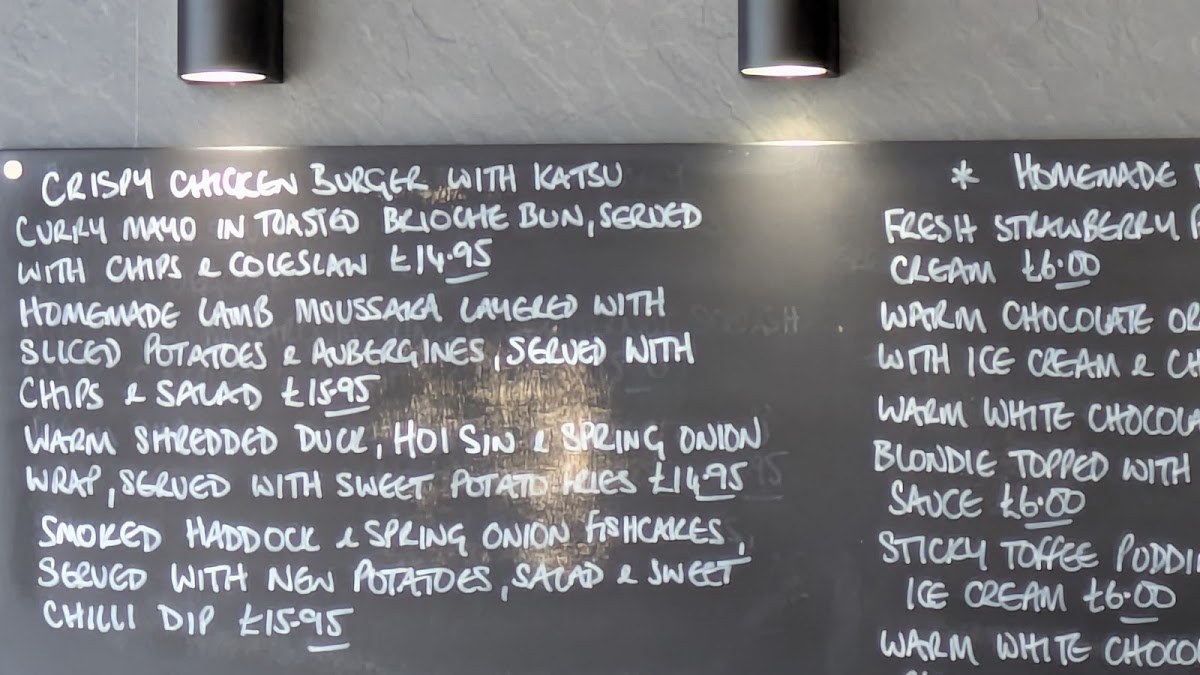 CRISPY CHICKEN BURGER WITH KATSU
CURRY MAYO IN TOASTED BRIOCHE BUN, SERVED
WITH CHIPS & COLESLAW £14.95
HOMEMADE LAMB MOUSSAKA LAYERED WITH
SLICED POTATOES & AUBERGINES, SERVED WITH
CHIPS & SALAD £15.95
WARM SHREDDED DUCK, HOI SIN & SPRING ONION
WRAP, SERVED WITH SWEET POTATO FRIES £14.95
SMOKED HADDOCK & SPRING ONION FISHCAKES,
SERVED WITH NEW POTATOES, SALAD & SWEET
CHILLI DIP £15.95
* HOMEMADE
FRESH STRAWBERRY
CREAM £6.00
WARM CHOCOLATE OR
WITH ICE CREAM & CH
WARM WHITE CHOCOLA
BLONDIE TOPPED WITH
SAUCE £6.00
STICKY TOFFEE PUDDI
ICE CREAM £6.00
WARM WHITE CHOCO